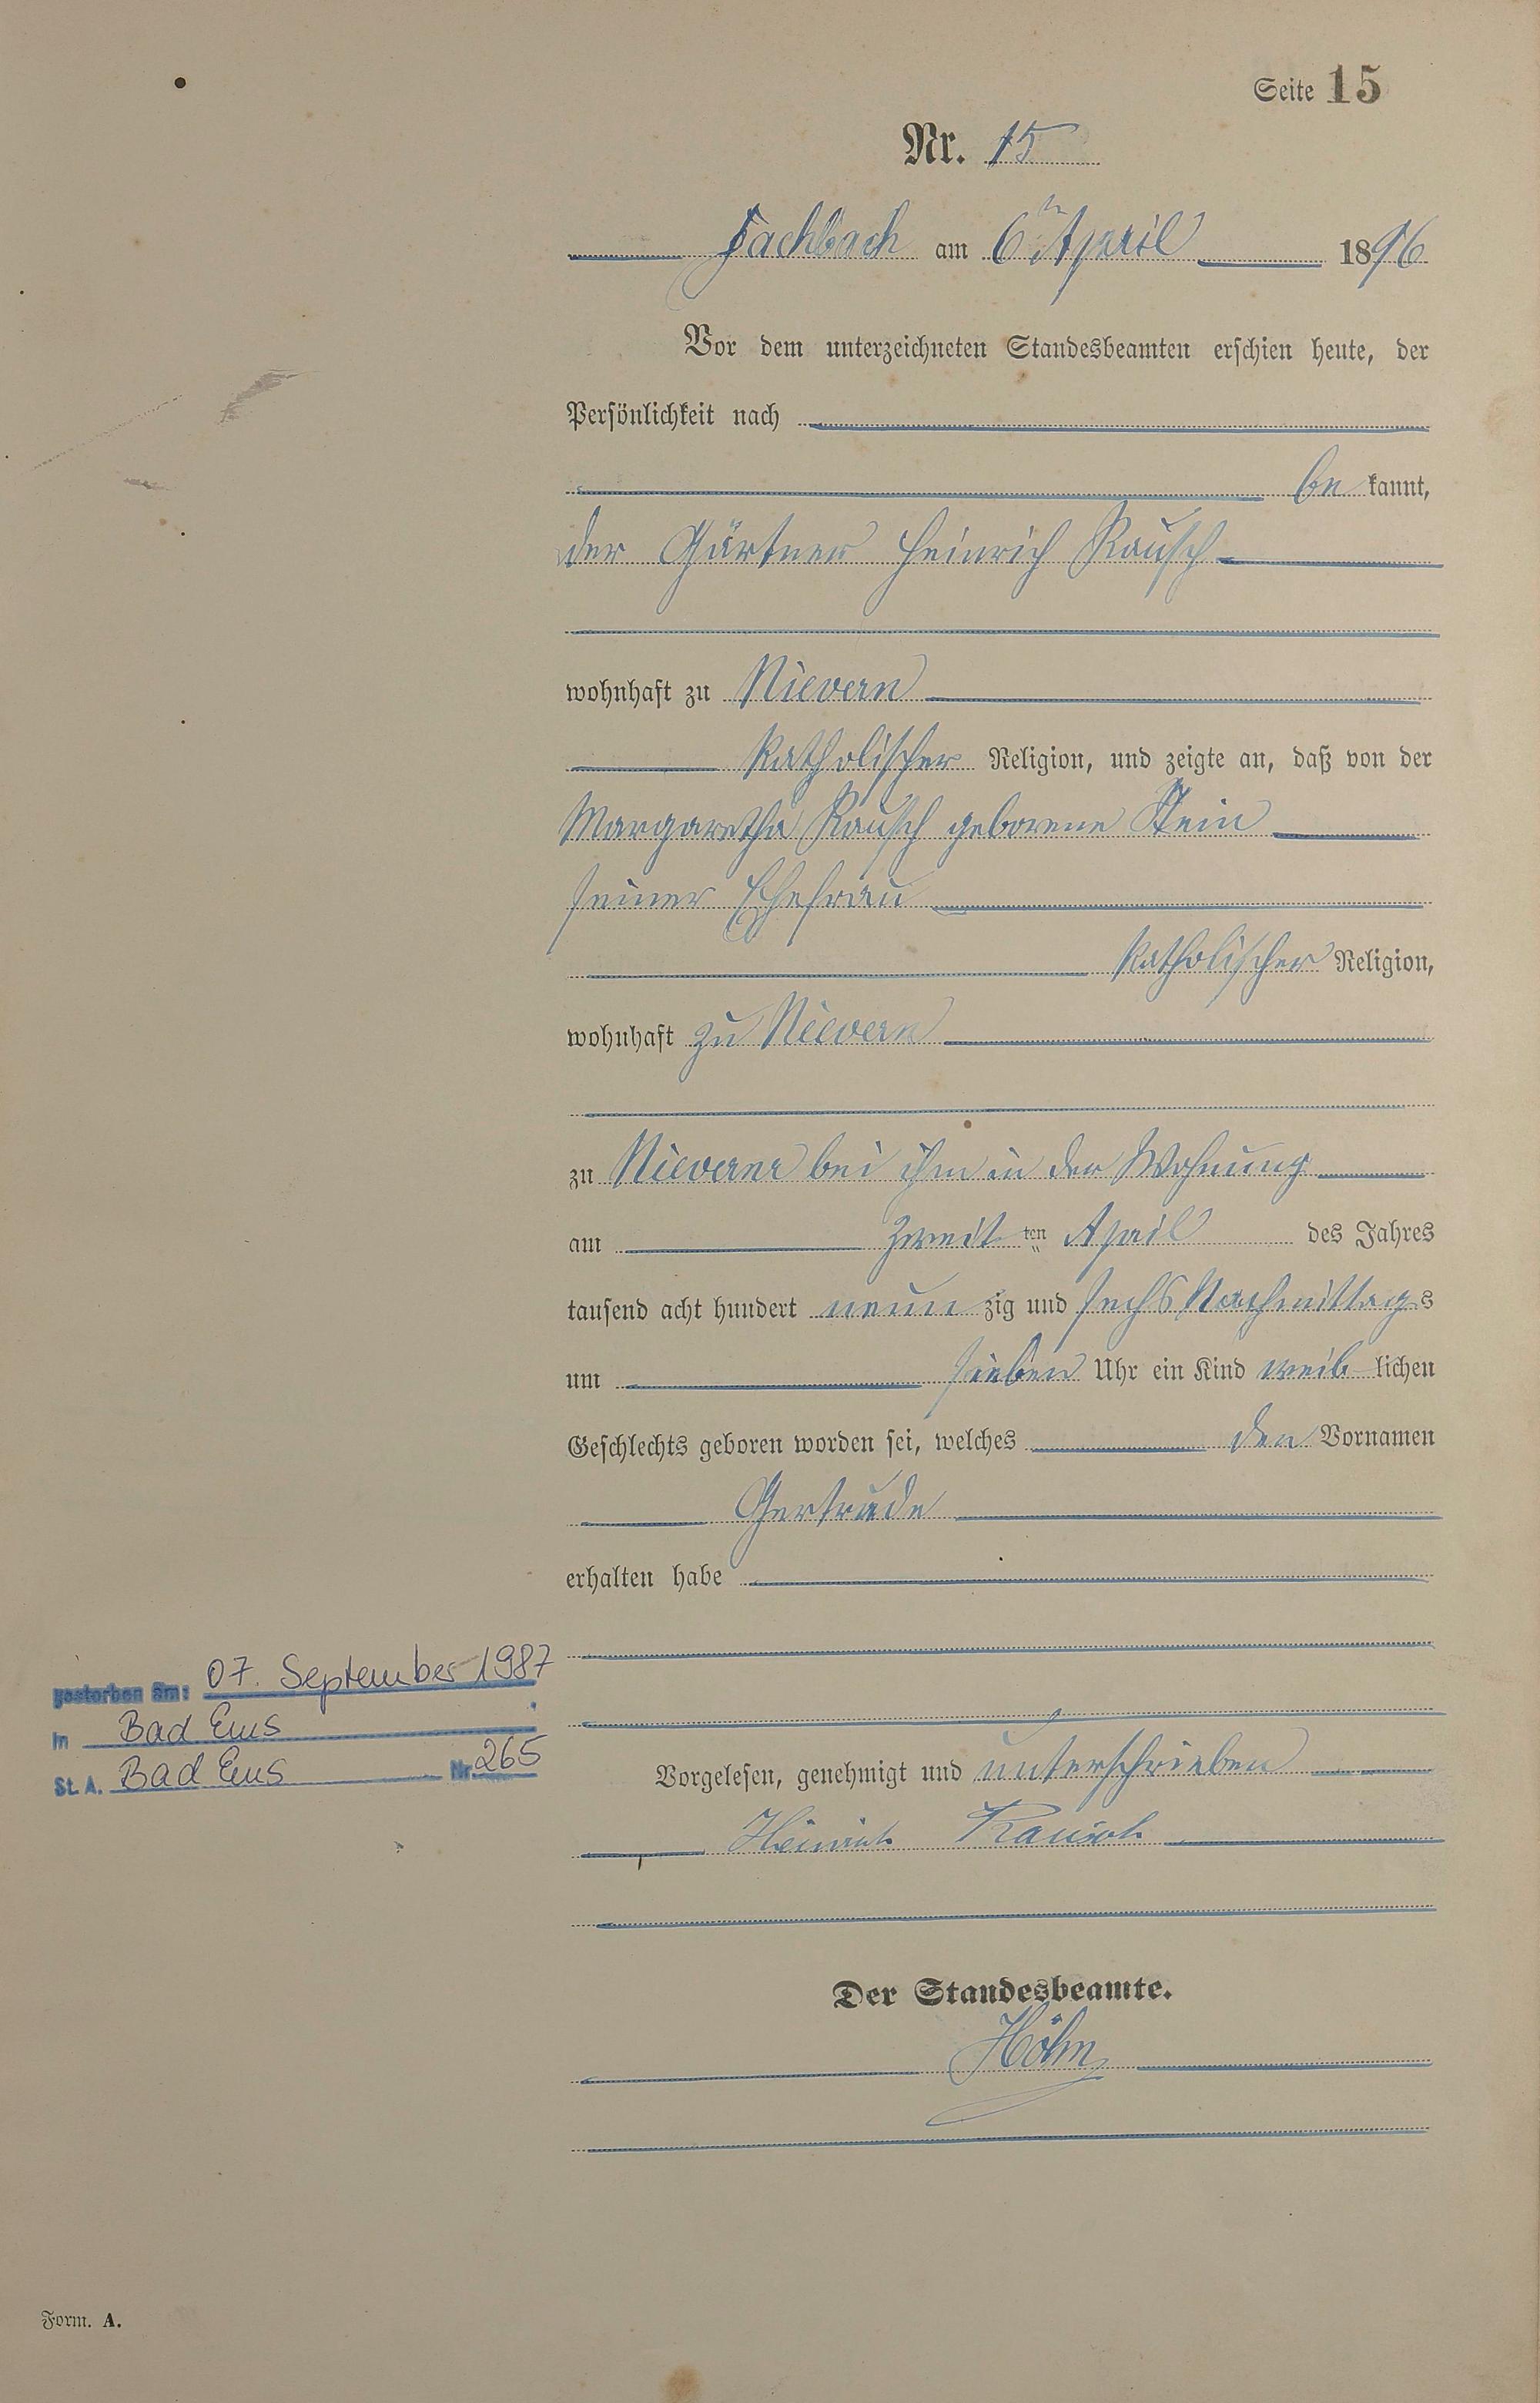 Seite 15
Nr. 15
Fachbach am 6ten April 1896
Vor dem unterzeichneten Standesbeamten erschien heute, der
Persönlichkeit nach
be kannt,
der Gärtner Heinrich Rausch
wohnhaft zu Nievern
katholischer Religion, und zeigte an, daß von der
Margaretha Rausch geborene Stein
seiner Ehefrau
katholischer Religion,
wohnhaft zu Nievern
zu Nievern bei ihm in der Wohnung
am zweit ten April des Jahres
tausend acht hundert neun zig und sechs Nachmittags
um sieben Uhr ein Kind weib lichen
Geschlechts geboren worden sei, welches den Vornamen
Gertrude
erhalten habe
gestorben am: 07. September 1987
in Bad Ems
St. A. Bad Ems Nr. 265
Vorgelesen, genehmigt und unterschrieben
Heinrich Rausch
Der Standesbeamte.
Höhn
Form. A.